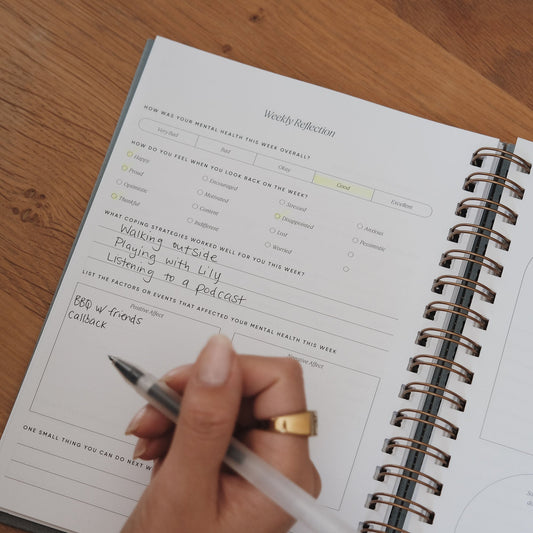 Weekly Reflection
HOW WAS YOUR MENTAL HEALTH THIS WEEK OVERALL?
Very Bad Bad Okay Good Excellent
HOW DO YOU FEEL WHEN YOU LOOK BACK ON THE WEEK?
Happy Encouraged Stressed Anxious
Proud Motivated Disappointed Pessimistic
Optimistic Content Lost
Thankful Indifferent Worried
WHAT COPING STRATEGIES WORKED WELL FOR YOU THIS WEEK?
Walking outside
Playing with Lily
Listening to a podcast
LIST THE FACTORS OR EVENTS THAT AFFECTED YOUR MENTAL HEALTH THIS WEEK
Positive Affect Negative Affect
BBQ w/ friends
Callback
ONE SMALL THING YOU CAN DO NEXT